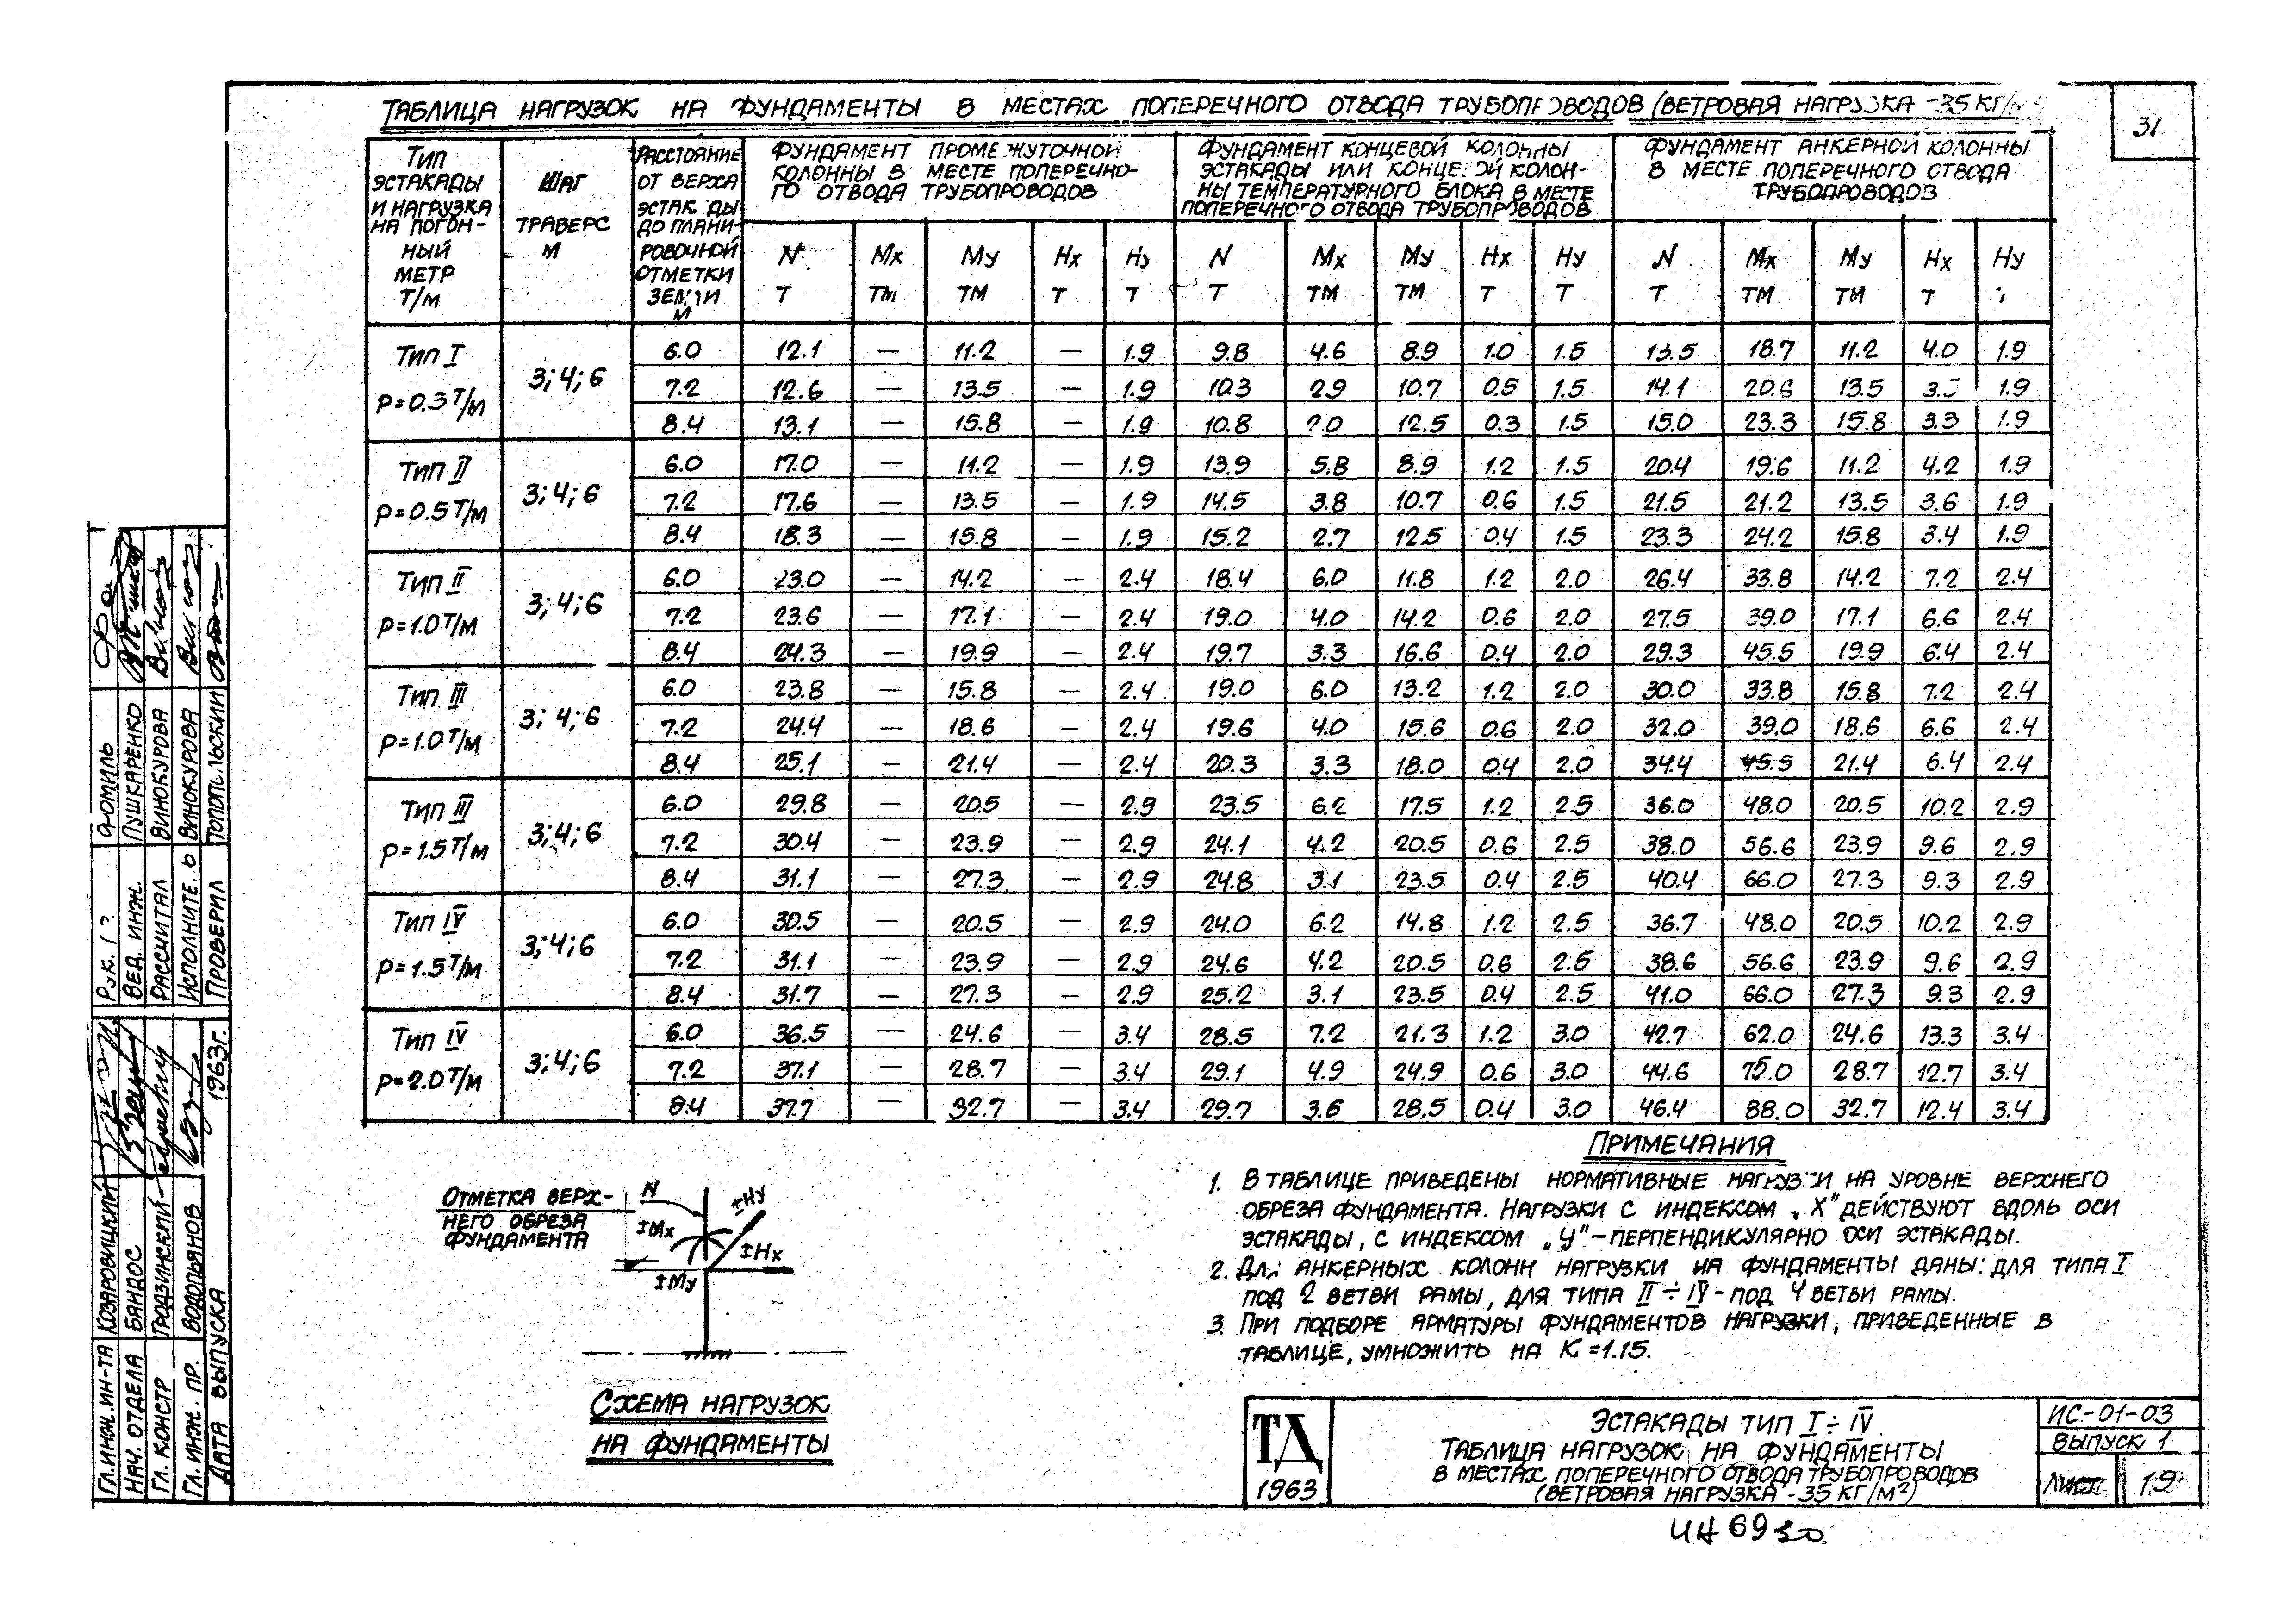 31
ТАБЛИЦА НАГРУЗОК НА ФУНДАМЕНТЫ В МЕСТАХ ПОПЕРЕЧНОГО ОТВОДА ТРУБОПРОВОДОВ (ВЕТРОВАЯ НАГРУЗКА -35 КГ/М²)
ТИП ЭСТАКАДЫ И НАГРУЗКА НА ПОГОН-НЫЙ МЕТР Т/М
ШАГ ТРАВЕРС М
РАССТОЯНИЕ ОТ ВЕРХА ЭСТАКАДЫ ДО ПЛАНИ-РОВОЧНОЙ ОТМЕТКИ ЗЕМЛИ М
ФУНДАМЕНТ ПРОМЕЖУТОЧНОЙ
КОЛОННЫ В МЕСТЕ ПОПЕРЕЧНО-
ГО ОТВОДА ТРУБОПРОВОДОВ
ФУНДАМЕНТ КОНЦЕВОЙ КОЛОННЫ
ЭСТАКАДЫ ИЛИ КОНЦЕВОЙ КОЛОН-
НЫ ТЕМПЕРАТУРНОГО БЛОКА В МЕСТЕ
ПОПЕРЕЧНОГО ОТВОДА ТРУБОПРОВОДОВ
ФУНДАМЕНТ АНКЕРНОЙ КОЛОННЫ
В МЕСТЕ ПОПЕРЕЧНОГО ОТВОДА
ТРУБОПРОВОДОВ
N Мх Му Нх Ну N Мх Му Нх Ну N Мх Му Нх Ну
Т ТМ ТМ Т Т Т ТМ ТМ Т Т Т ТМ ТМ Т
ТИП I
Р=0.3 Т/М
3; 4; 6
6.0 12.1 — 11.2 — 1.9 9.8 4.6 8.9 1.0 1.5 13.5 18.7 11.2 4.0 1.9
7.2 12.6 — 13.5 — 1.9 10.3 2.9 10.7 0.5 1.5 14.1 20.6 13.5 1.9
8.4 13.1 — 15.8 — 1.9 10.8 2.0 12.5 0.3 1.5 15.0 23.3 15.8 3.3 1.9
ТИП II
Р=0.5 Т/М
3; 4; 6
6.0 17.0 — 11.2 — 1.9 13.9 5.8 8.9 1.2 1.5 20.4 19.6 11.2 4.2 1.9
7.2 17.6 — 13.5 — 1.9 14.5 3.8 10.7 0.6 1.5 21.5 21.2 13.5 3.6 1.9
8.4 18.3 — 15.8 — 1.9 15.2 2.7 12.5 0.4 1.5 23.3 24.2 15.8 3.4 1.9
ТИП II
Р=1.0 Т/М
3; 4; 6
6.0 23.0 — 14.2 — 2.4 18.4 6.0 11.8 1.2 2.0 26.4 33.8 14.2 7.2 2.4
7.2 23.6 — 17.1 — 2.4 19.0 4.0 14.2 0.6 2.0 27.5 39.0 17.1 6.6 2.4
8.4 24.3 — 19.9 — 2.4 19.7 3.3 16.6 0.4 2.0 29.3 45.5 19.9 6.4 2.4
ТИП III
Р=1.0 Т/М
3; 4; 6
6.0 23.8 — 15.8 — 2.4 19.0 6.0 13.2 1.2 2.0 30.0 33.8 15.8 7.2 2.4
7.2 24.4 — 18.6 — 2.4 19.6 4.0 15.6 0.6 2.0 32.0 39.0 18.6 6.6 2.4
8.4 25.1 — 21.4 — 2.4 20.3 3.3 18.0 0.4 2.0 34.4 45.5 21.4 6.4 2.4
ТИП III
Р=1.5 Т/М
3; 4; 6
6.0 29.8 — 20.5 — 2.9 23.5 6.2 17.5 1.2 2.5 36.0 48.0 20.5 10.2 2.9
7.2 30.4 — 23.9 — 2.9 24.1 4.2 20.5 0.6 2.5 38.0 56.6 23.9 9.6 2.9
8.4 31.1 — 27.3 — 2.9 24.8 3.1 23.5 0.4 2.5 40.4 66.0 27.3 9.3 2.9
ТИП IV
Р=1.5 Т/М
3; 4; 6
6.0 30.5 — 20.5 — 2.9 24.0 6.2 14.8 1.2 2.5 36.7 48.0 20.5 10.2 2.9
7.2 31.1 — 23.9 — 2.9 24.6 4.2 20.5 0.6 2.5 38.6 56.6 23.9 9.6 2.9
8.4 31.7 — 27.3 — 2.9 25.2 3.1 23.5 0.4 2.5 41.0 66.0 27.3 9.3 2.9
ТИП IV
Р=2.0 Т/М
3; 4; 6
6.0 36.5 — 24.6 — 3.4 28.5 7.2 21.3 1.2 3.0 42.7 62.0 24.6 13.3 3.4
7.2 37.1 — 28.7 — 3.4 29.1 4.9 24.9 0.6 3.0 44.6 75.0 28.7 12.7 3.4
8.4 37.7 — 32.7 — 3.4 29.7 3.6 28.5 0.4 3.0 46.4 88.0 32.7 12.4 3.4
ОТМЕТКА ВЕРХ-
НЕГО ОБРЕЗА
ФУНДАМЕНТА
N
±Ну
±Мх
±Нх
±Му
СХЕМА НАГРУЗОК
НА ФУНДАМЕНТЫ
ПРИМЕЧАНИЯ
1. В ТАБЛИЦЕ ПРИВЕДЕНЫ НОРМАТИВНЫЕ НАГРУЗКИ НА УРОВНЕ ВЕРХНЕГО
ОБРЕЗА ФУНДАМЕНТА. НАГРУЗКИ С ИНДЕКСОМ „Х" ДЕЙСТВУЮТ ВДОЛЬ ОСИ
ЭСТАКАДЫ, С ИНДЕКСОМ „У"-ПЕРПЕНДИКУЛЯРНО ОСИ ЭСТАКАДЫ.
2. ДЛЯ АНКЕРНЫХ КОЛОНН НАГРУЗКИ НА ФУНДАМЕНТЫ ДАНЫ: ДЛЯ ТИПА I
ПОД 2 ВЕТВИ РАМЫ, ДЛЯ ТИПА II ÷ IV - ПОД 4 ВЕТВИ РАМЫ.
3. ПРИ ПОДБОРЕ АРМАТУРЫ ФУНДАМЕНТОВ НАГРУЗКИ, ПРИВЕДЕННЫЕ В
ТАБЛИЦЕ, УМНОЖИТЬ НА К=1.15.
ТД
1963
ЭСТАКАДЫ ТИП I ÷ IV
ТАБЛИЦА НАГРУЗОК НА ФУНДАМЕНТЫ
В МЕСТАХ ПОПЕРЕЧНОГО ОТВОДА ТРУБОПРОВОДОВ
(ВЕТРОВАЯ НАГРУЗКА -35 КГ/М²)
ИС-01-03
ВЫПУСК 1
ЛИСТ 19
РУК. ФОМИЛЬ
ВЕД. ИНЖ. ПУШКАРЕНКО
РАССЧИТАЛ ВИНОКУРОВА
ИСПОЛНИТЕЛЬ ВИНОКУРОВА
ПРОВЕРИЛ ТОПОПОЛЬСКИЙ
ГЛ. ИНЖ. ИН-ТА КОЗАРОВИЦКИЙ
НАЧ. ОТДЕЛА БАНДОС
ГЛ. КОНСТР ГРОДЗИНСКИЙ
ГЛ. ИНЖ. ПР. ВОДОПЬЯНОВ
ДАТА ВЫПУСКА 1963г.